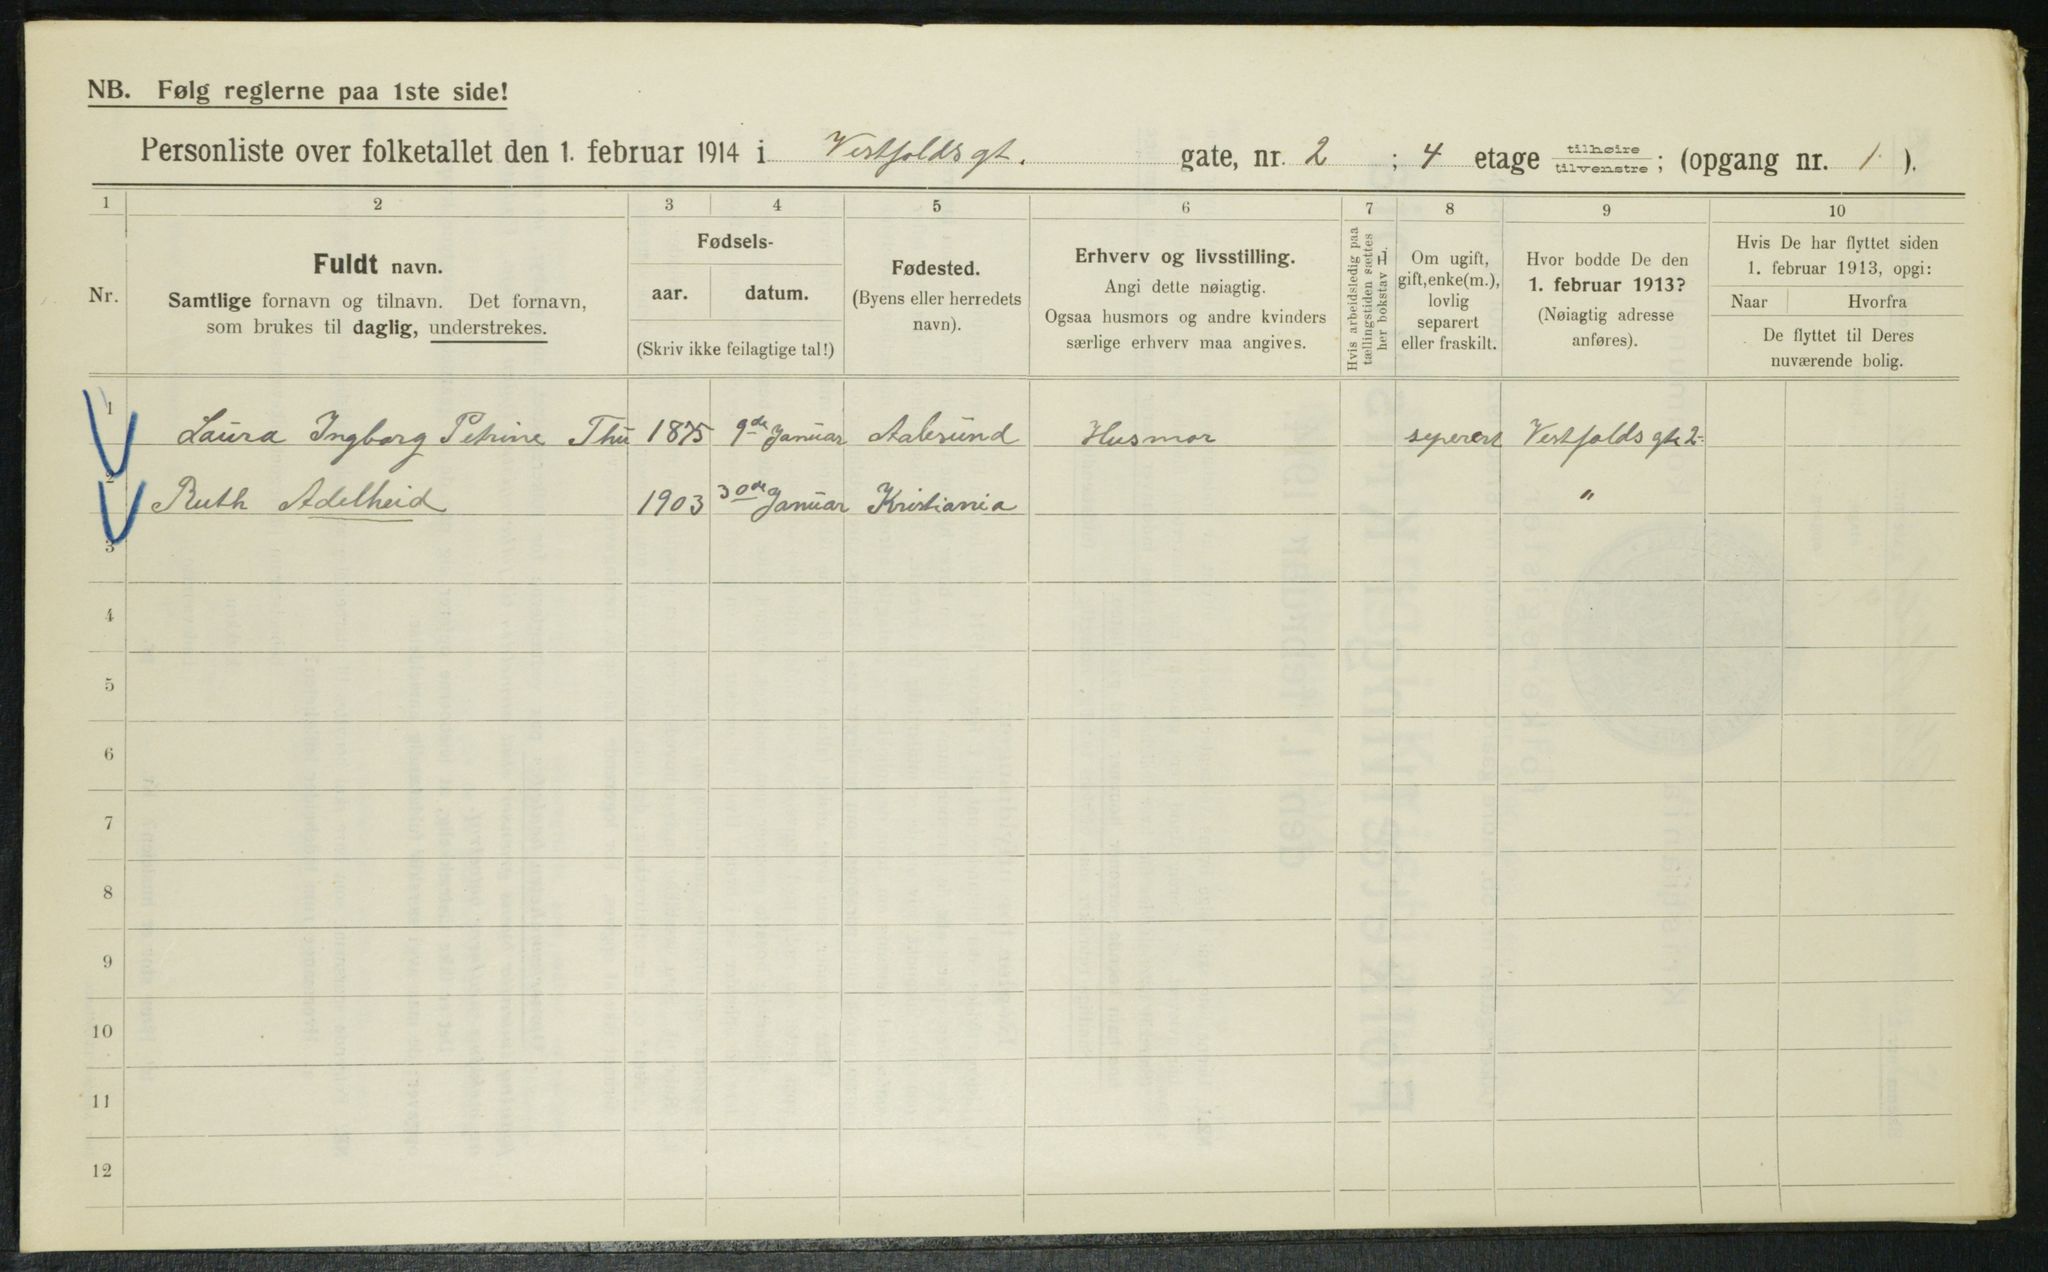 NB. Følg reglerne paa 1ste side!
Personliste over folketallet den 1. februar 1914 i Vestfoldsgt. gate, nr. 2 ; 4 etage tilhøire tilvenstre ; (opgang nr. 1 ).
1 2 3 4 5 6 7 8 9 10
Nr.
Fuldt navn.
Samtlige fornavn og tilnavn. Det fornavn,
som brukes til daglig, understrekes.
Fødsels-
aar. datum.
(Skriv ikke feilagtige tal!)
Fødested.
(Byens eller herredets
navn).
Erhverv og livsstilling.
Angi dette nøiagtig.
Ogsaa husmors og andre kvinders
særlige erhverv maa angives.
Hvis arbeidsledig paa
tællingstiden sættes
her bokstav L.
Om ugift,
gift, enke(m.),
lovlig
separert
eller fraskilt.
Hvor bodde De den
1. februar 1913?
(Nøiagtig adresse
anføres).
Hvis De har flyttet siden
1. februar 1913, opgi:
Naar Hvorfra
De flyttet til Deres
nuværende bolig.
1 Laura Ingborg Petrine Thu 1875 9de Januar Aalesund Husmor seperert Vestfolds gt. 2
2 Ruth Adelheid 1903 30de Januar Kristiania "
3
4
5
6
7
8
9
10
11
12